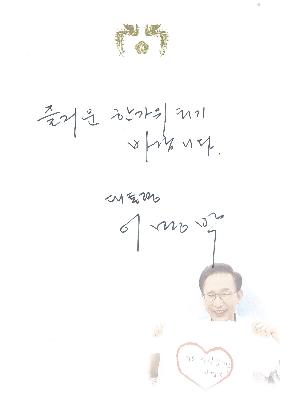 즐거운 한가위 되기
바랍니다.
대통령
이명박